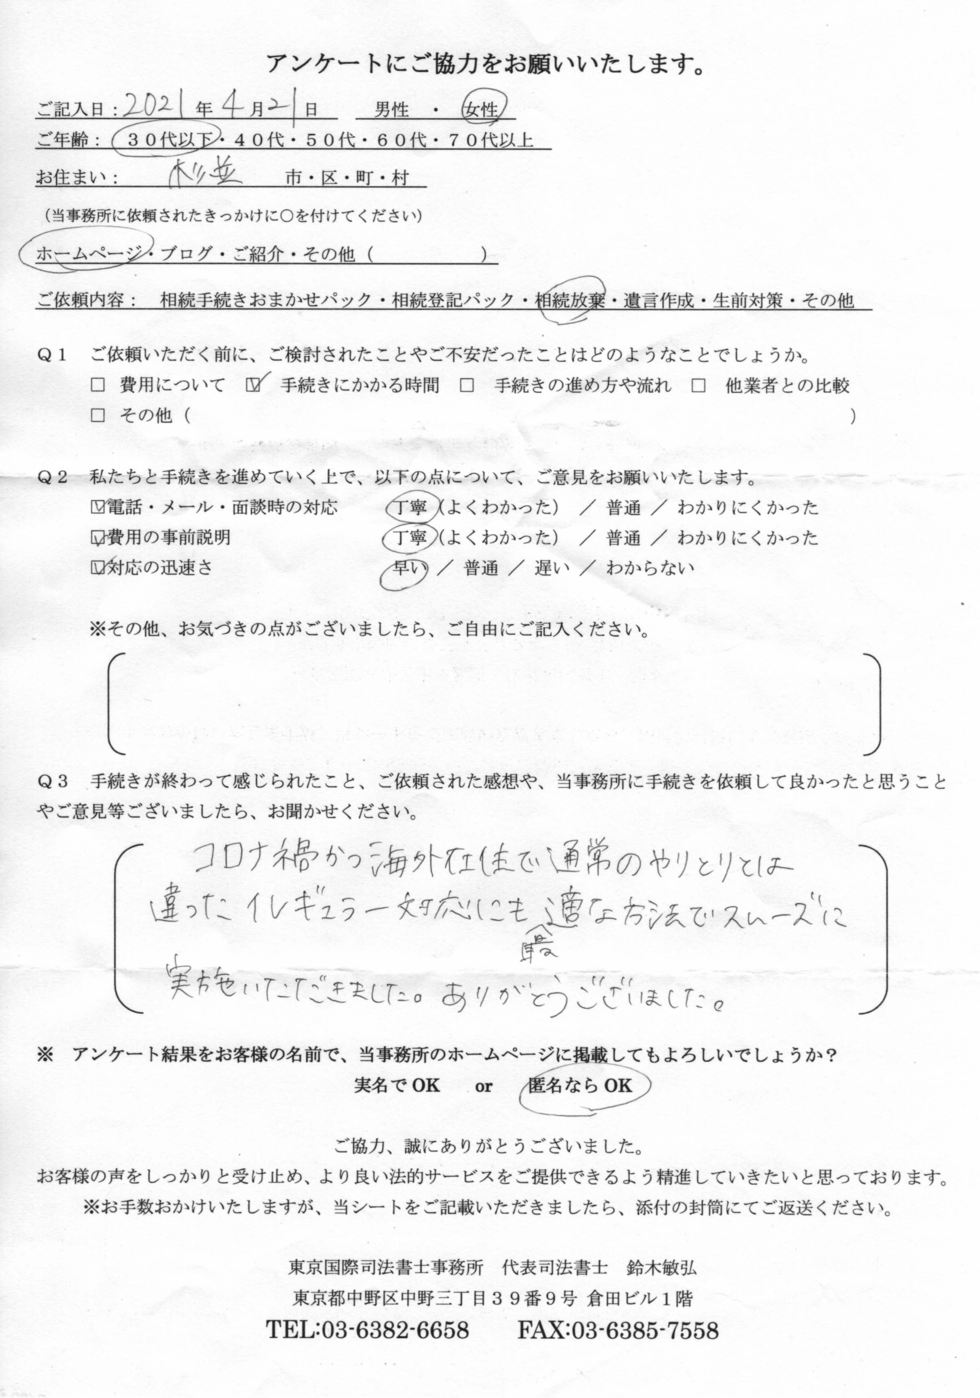 アンケートにご協力をお願いいたします。
ご記入日：2021年4月21日　男性　・　女性
ご年齢：　３０代以下・４０代・５０代・６０代・７０代以上
お住まい：　杉並　市・区・町・村
（当事務所に依頼されたきっかけに○を付けてください）
ホームページ・ブログ・ご紹介・その他（　　　　　　）
ご依頼内容：　相続手続きおまかせパック・相続登記パック・相続放棄・遺言作成・生前対策・その他
Ｑ１　ご依頼いただく前に、ご検討されたことやご不安だったことはどのようなことでしょうか。
□　費用について　☑　手続きにかかる時間　□　手続きの進め方や流れ　□　他業者との比較
□　その他（　　　　　　　　　　　　）
Ｑ２　私たちと手続きを進めていく上で、以下の点について、ご意見をお願いいたします。
☑電話・メール・面談時の対応　丁寧（よくわかった）　／　普通　／　わかりにくかった
☑費用の事前説明　丁寧（よくわかった）　／　普通　／　わかりにくかった
☑対応の迅速さ　早い　／　普通　／　遅い　／　わからない
※その他、お気づきの点がございましたら、ご自由にご記入ください。
Ｑ３　手続きが終わって感じられたこと、ご依頼された感想や、当事務所に手続きを依頼して良かったと思うこと
やご意見等ございましたら、お聞かせください。
コロナ禍かつ海外在住で通常のやりとりとは
違ったイレギュラー対応にも最適な方法でスムーズに
実施いただきました。ありがとうございました。
※　アンケート結果をお客様の名前で、当事務所のホームページに掲載してもよろしいでしょうか？
実名でOK　or　匿名ならOK
ご協力、誠にありがとうございました。
お客様の声をしっかりと受け止め、より良い法的サービスをご提供できるよう精進していきたいと思っております。
※お手数おかけいたしますが、当シートをご記載いただきましたら、添付の封筒にてご返送ください。
東京国際司法書士事務所　代表司法書士　鈴木敏弘
東京都中野区中野三丁目３９番９号 倉田ビル１階
TEL:03-6382-6658　FAX:03-6385-7558